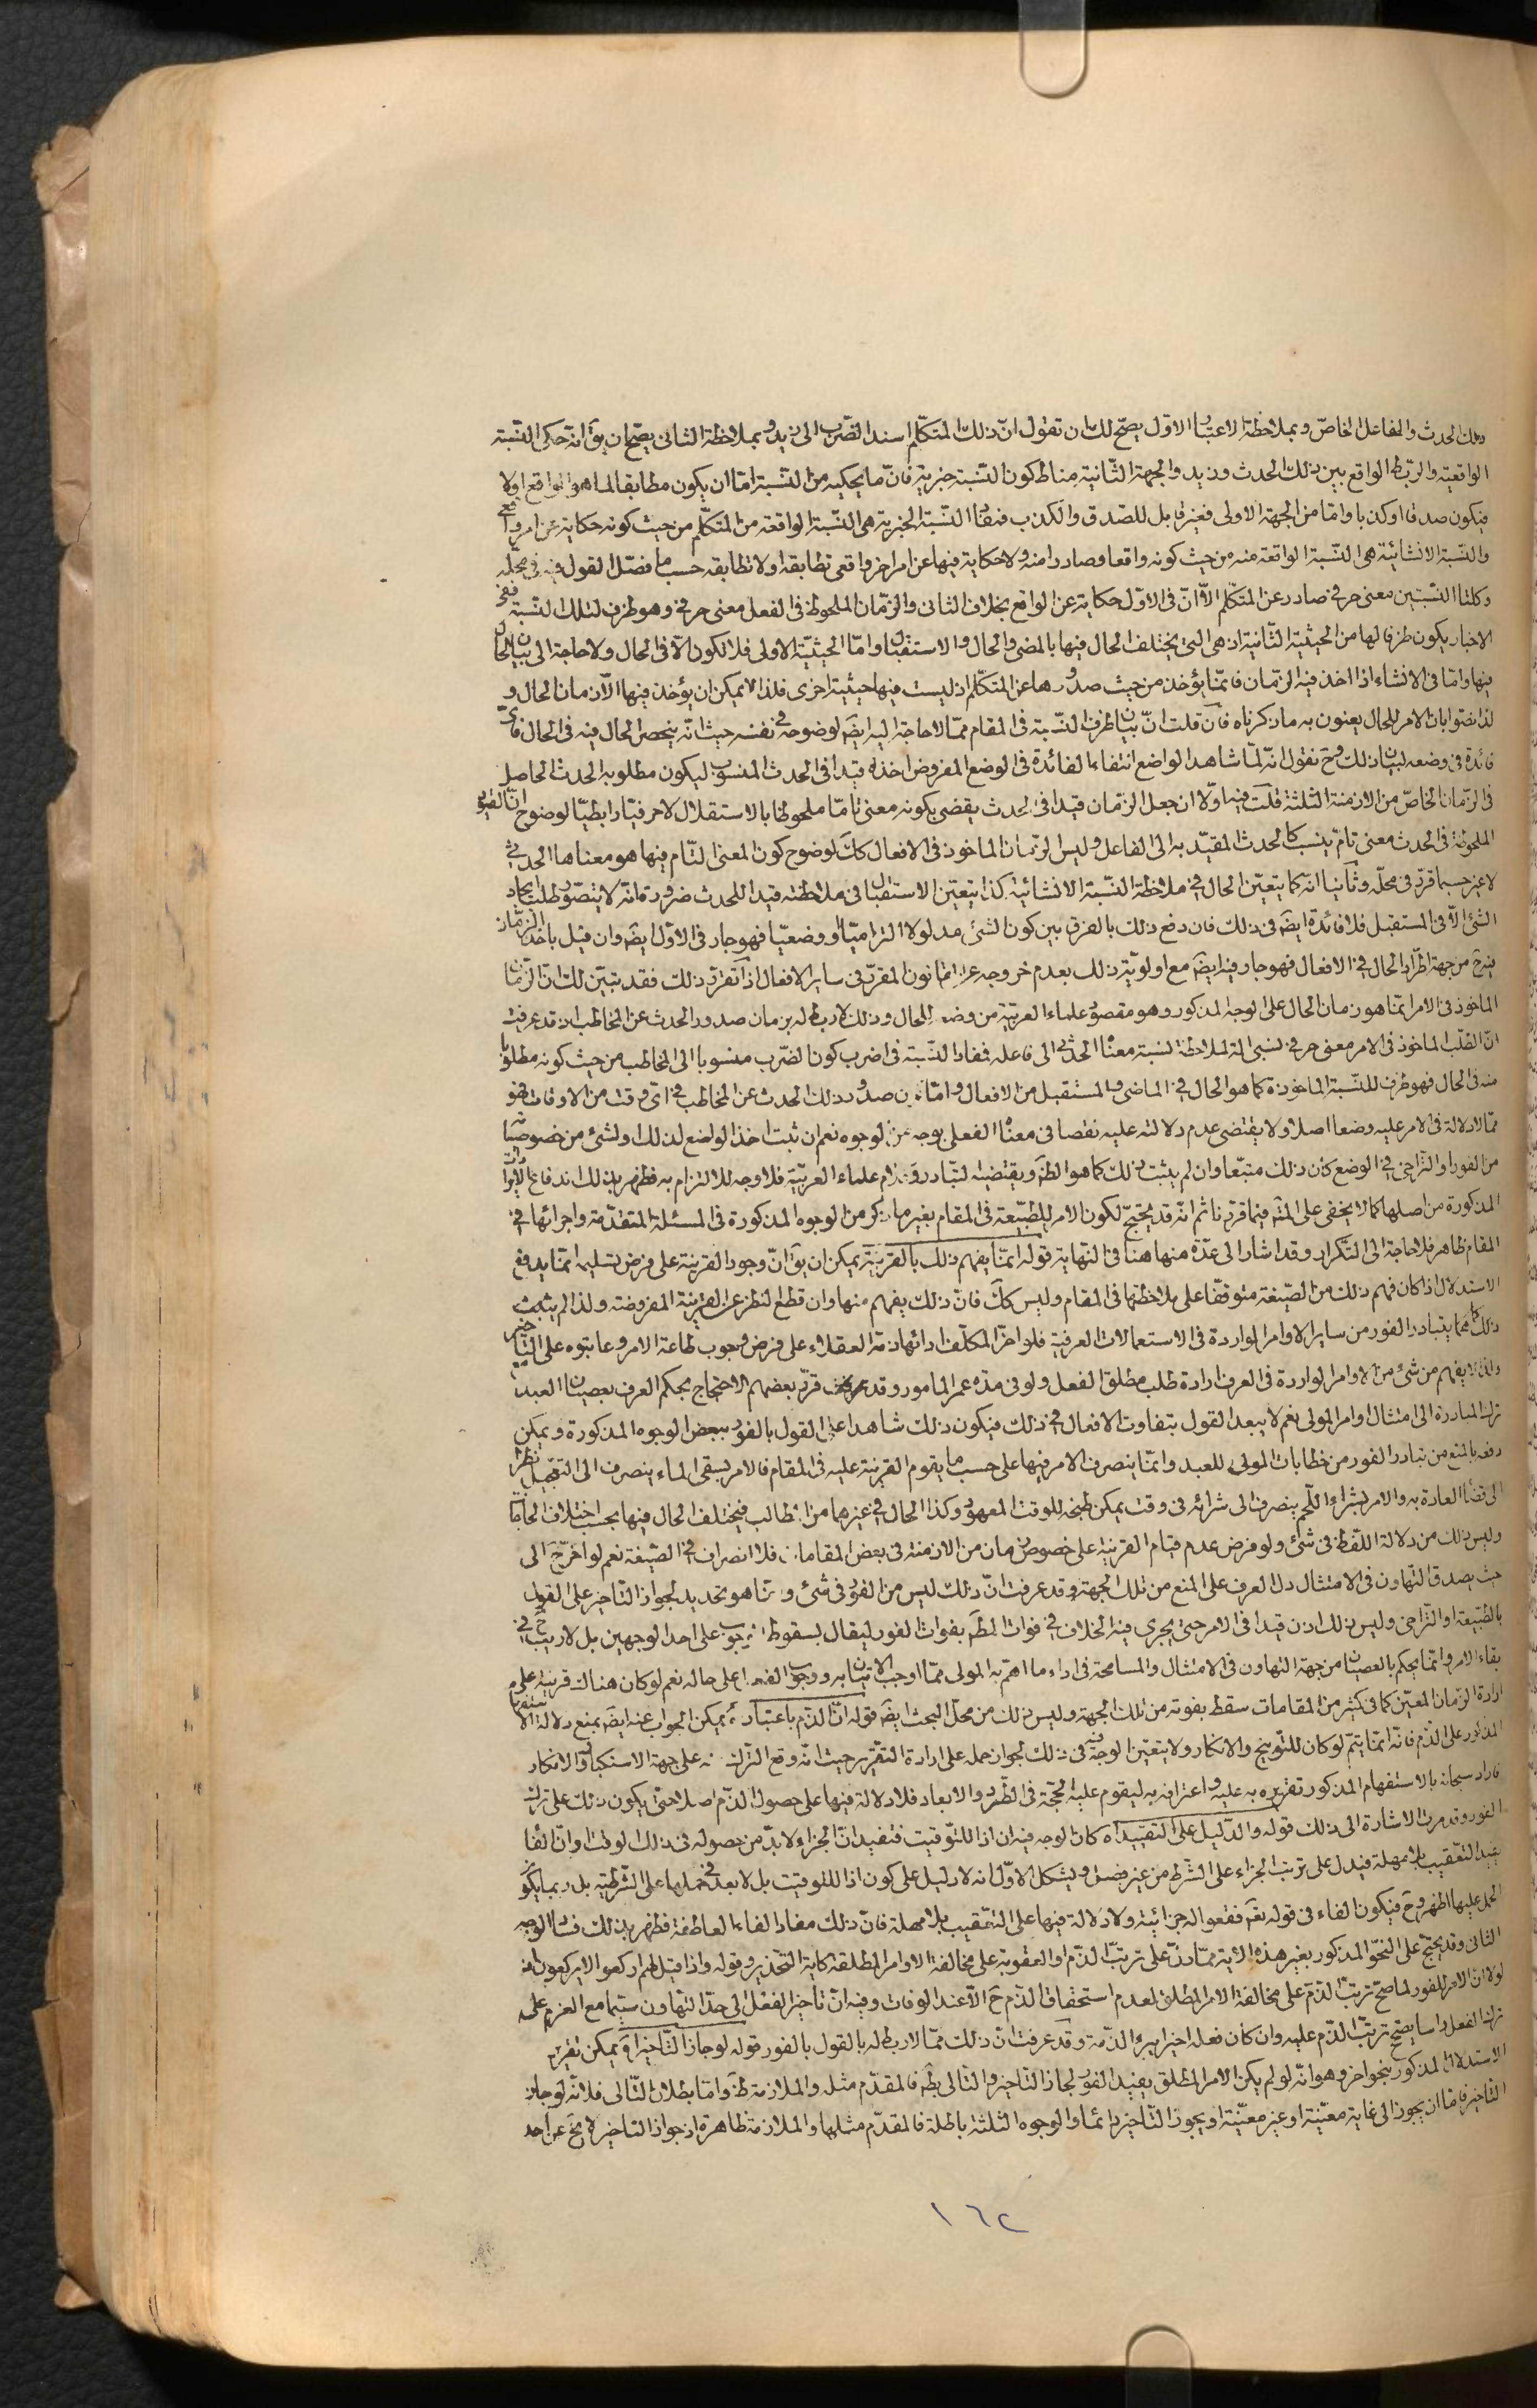 وذلك الحدث والفاعل الخاصّ وبملاحظة الاعتبار الاوّل يصحّ لك ان تقول انّ ذلك المتكلّم اسند الضّرب الى زيد وبملاحظة الثاني يصحّ ان يقٓ انه حكى النّسبة
الواقعيّة والرّبط الواقع بين ذلك الحدث وزيد والجهة الثّانية مناط كون النّسبة خبريّة فانّ ما يحكيه من النّسبة امّا ان يكون مطابقا لما هو الواقع اولا
فيكون صدقا او كذبا وامّا من الجهة الاولى فغير قابل للصّدق والكذب فمفاد النّسبة الخبريّة هى النّسبة الواقعة من المتكلّم من حيث كونه حكاية عن امر واقعى
والنّسبة الانشائيّة هى النّسبة الواقعة منه من حيث كونه واقعا وصادرا منه ولا حكاية فيها عن امر اخر واقعى تطابقه او لا تطابقه حسب ما فصّل القول فيه فى محلّه
وكلتا النّسبتين معنى حرفى صادر عن المتكلّم الّا انّ فى الاوّل حكاية عن الواقع بخلاف الثانى والزّمان الملحوظ فى الفعل معنى حرفى وهو ظرف لتلك النّسبة ففى
الاخبار يكون ظرفا لها من الحيثيّة الثّانية اذ هى التى يختلف الحال فيها بالمضى والحال والاستقبال وامّا الحيثيّة الاولى فلا تكون الّا فى الحال ولا حاجة الى بيان الحال
فيها وامّا فى الانشاء اذا اخذ فيه الزّمان فانّما يؤخذ من حيث صدورها عن المتكلّم اذ ليست فيها حيثيّة اخرى فلذا لا يمكن ان يؤخذ فيها الّا زمان الحال و
لذا نصّوا بانّ الامر للحال يعنون به ما ذكرناه فان قلت انّ بيان ظرف النّسبة فى المقام ممّا لا حاجة اليه ايضٓ لوضوحه فى نفسه حيث انّه ينحصر الحال فيه فى الحال فاىّ
فائدة فى وضعه لبيان ذلك وحٓ نقول انّه لمّا شاهد الواضع انتفاء الفائدة فى الوضع المفروض اخذه قيدا فى الحدث المنسوب ليكون مطلوبه الحدث الحاصل
فى الزّمان الخاصّ من الازمنة الثلثة قلت فيه اوّلا ان جعل الزّمان قيدا فى الحدث يقضى بكونه معنى تامّا ملحوظا بالاستقلال لا حرفيّا رابطيّا لوضوح انّ القيود
الملحوظة فى الحدث معنى تامّ ينسب كالحدث المقيّد به الى الفاعل وليس الزّمان الماخوذ فى الافعال كٓ لوضوح كون المعنى التّام فيها هو معناها الحدثى
لا غير حسبما قرّر فى محلّه وثانيا انّه كما يتعيّن الحال فى ملاحظة النّسبة الانشائيّة كذا يتعيّن الاستقبال فى ملاحظته قيدا للحدث ضرورة انّه لا يتصوّر طلب ايجاد
الشئ الّا فى المستقبل فلا فائدة ايضٓ فى ذلك فان دفع ذلك بالفرق بين كون الشئ مدلولا التزاميّا او وضعيّا فهو جار فى الاوّل ايضٓ وان قيل باخذ الزّمان
فيه حٓ من جهة اطّراد الحال فى الافعال فهو جار فيه ايضٓ مع اولويّة ذلك بعدم خروجه عن القانون المقرّر فى ساير الافعال اذا تقرّر ذلك فقد تبيّن لك انّ الزّمان
الماخوذ فى الامر انّما هو زمان الحال على الوجه المذكور وهو مقصود علماء العربيّة من وضعه للحال وذلك لا ربط له بزمان صدور الحدث عن المخاطب اذ قد عرفت
انّ الطّلب الماخوذ فى الامر معنى حرفى نسبى الة لملاحظة نسبة معناه الحدثى الى فاعله فمفاد النّسبة فى اضرب كون الضّرب منسوبا الى المخاطب من حيث كونه مطلوبا
منه فى الحال فهو ظرف للنّسبة الماخوذة كما هو الحال فى الماضى والمستقبل من الافعال وامّا ان صدور ذلك الحدث عن المخاطب فى اىّ وقت من الاوقات فهو
ممّا لا دلالة فى الامر عليه وضعا اصلا ولا يقتضى عدم دلالته عليه نقصا فى معناه الفعلى بوجه من الوجوه نعم ان ثبت اخذ الواضع لذلك او لشئ من خصوصيّات
من الفور او التّراخى فى الوضع كان ذلك متبّعا وان لم يثبت ذلك كما هو الظّٓ ويقتضيه التّبادر وكلام علماء العربيّة فلا وجه للالتزام به فظهر بذلك اندفاع الايراد
المذكورة من اصلها كما لا يخفى على المتامّل فيما قرّرنا ثم انّه قد يحتجّ لكون الامر للطّبيعة فى المقام بغير ما ذكر من الوجوه المذكورة فى المسئلة المتقدّمة واجرائها فى
المقام ظاهر فلا حاجة الى التّكرار وقد اشار الى عدّة منها هنا فى النّهاية قوله انّما يفهم ذلك بالقرينة يمكن ان يقٓ انّ وجود القرينة على فرض تسليمه انّما يدفع
الاستدلال اذا كان فهم ذلك من الصّيغة متوقّفا على ملاحظتها فى المقام وليس كٓ فانّ ذلك يفهم منها وان قطع النّظر عن القرينة المفروضة ولذا لم يثبت
ذلك كما يتبادر الفور من ساير الاوامر الواردة فى الاستعمالات العرفية فلو اخّر المكلّف ادائها ذمّه العقلاء على فرض وجوب طاعة الامر وعاتبوه على التاخير
ولذا لا يفهم من شئ من الاوامر الواردة فى العرف ارادة طلب مطلق الفعل ولو فى مدّة عمر المامور وقد قرّر بعضهم الاحتجاج بحكم العرف بعصيان العبد
ترك المبادرة الى امتثال اوامر المولى نعم لا يبعد القول بتفاوت الافعال فى ذلك فيكون ذلك شاهدا على القول بالفور ببعض الوجوه المذكورة ويمكن
دفعه بالمنع من تبادر الفور من خطابات المولى للعبد وانّما ينصرف الامر فيها على حسب ما يقوم القرينة عليه فى المقام فالامر بسقى الماء ينصرف الى التعجيل نظرا
الى قضاء العادة به والامر بشراء اللّحم ينصرف الى شرائه فى وقت يمكن طبخه للوقت المعهود وكذا الحال فى غيرهما من المطالب فيختلف الحال فيها بحسب اختلاف الحاجات
وليس ذلك من دلالة اللّفظ فى شئ ولو فرض عدم قيام القرينة على خصوص زمان من الازمنة فى بعض المقامات فلا انصراف فى الصّيغة نعم لو اخّر الى
حيث يصدق التّهاون فى الامتثال دلّ العرف على المنع من تلك الجهة وقد عرفت انّ ذلك ليس من الفور فى شئ وانّما هو تحديد لجواز التّاخير على القول
بالطّبيعة او التّراخى وليس ذلك اذن قيدا فى الامر حتى يجرى فيه الخلاف فى فوات المطلوب بفوات الفور ليقال بسقوط الوجوب على احد الوجهين بل لا ريب حٓ فى
بقاء الامر وانّما يحكم بالعصيان من جهة التهاون فى الامتثال والمسامحة فى اداء ما اهتمّ به المولى ممّا اوجب الاتيان به ووجوب الفعل على حاله نعم لو كان هناك قرينة على
ارادة الزّمان المعيّن كما فى كثير من المقامات سقط بفوته من تلك الجهة وليس ذلك من محلّ البحث ايضٓ قوله انّ الذّم باعتبار اه يمكن الجواب عنه ايضٓ بمنع دلالة الاستفهام
المذكور على الذّم فانّه انّما يتمّ لو كان للتّوبيخ والانكار ولا يتعيّن الوجه فيه فى ذلك لجواز حمله على ارادة التقرير حيث انّه وقع التّرك منه على جهة الاستكبار والانكار
فاراد سبحانه بالاستفهام المذكور تقريره به عليه واعترافه به ليقوم عليه الحجّة فى الطّرد والابعاد فلا دلالة فيها على حصول الذّم اصلا حتى يكون ذلك على ترك
الفور وقد مرّت الاشارة الى ذلك قوله والدّليل على التقييد اه كان الوجه فيه ان اذا للتّوقيت فتفيد انّ الجزاء لا بدّ من حصوله فى ذلك الوقت او انّ الفاء
يفيد التّعقيب بلا مهلة فيدل على ترتّب الجزاء على الشّرط من غير فصل ويشكل الاوّل انه لا دليل على كون اذا للتّوقيت بل لا بعد فى حملها على الشّرطيّة بل ربما يكون
الحمل عليها اظهر وحٓ فيكون الفاء فى قوله تعٓ فقعوا له جزائيّة ولا دلالة فيها على التّعقيب بلا مهلة فانّ ذلك مفاد الفاء العاطفة فظهر بذلك فساد الوجه
الثانى وقد يحتجّ على النّحو المذكور بغير هذه الاية ممّا دلّ على ترتّب الذّم او العقوبة على مخالفة الاوامر المطلقة كاية التحذير وقوله واذا قيل لهم اركعوا لا يركعون اذ
لولا انّ الامر للفور لما صحّ ترتّب الذّم على مخالفة الامر المطلق لعدم استحقاق الذّم حٓ الّا عند الوفات وفيه انّ تاخير الفعل الى حدّ التّهاون سيّما مع العزم على
ترك الفعل راسا يصحّ ترتّب الذّم عليه وان كان فعله اخيرا يبرء الذّمة وقد عرفت انّ ذلك ممّا لا ربط له بالقول بالفور قوله لو جاز التّاخير اه يمكن تقرير
الاستدلال المذكور بنحو اخر وهو انّه لو لم يكن الامر المطلق يفيد الفور لجاز التّاخير والتالى بطٓ فالمقدّم مثله والملازمة ظٓ وامّا بطلان التّالى فلانّه لو جاز
التاخير فامّا ان يجوز الى غاية معيّنة او غير معيّنة او يجوز التّاخير دائما والوجوه الثلثة باطلة فالمقدّم مثلها والملازمة ظاهرة اذ جواز التاخير لا يخٓ عن احد
١٦٢